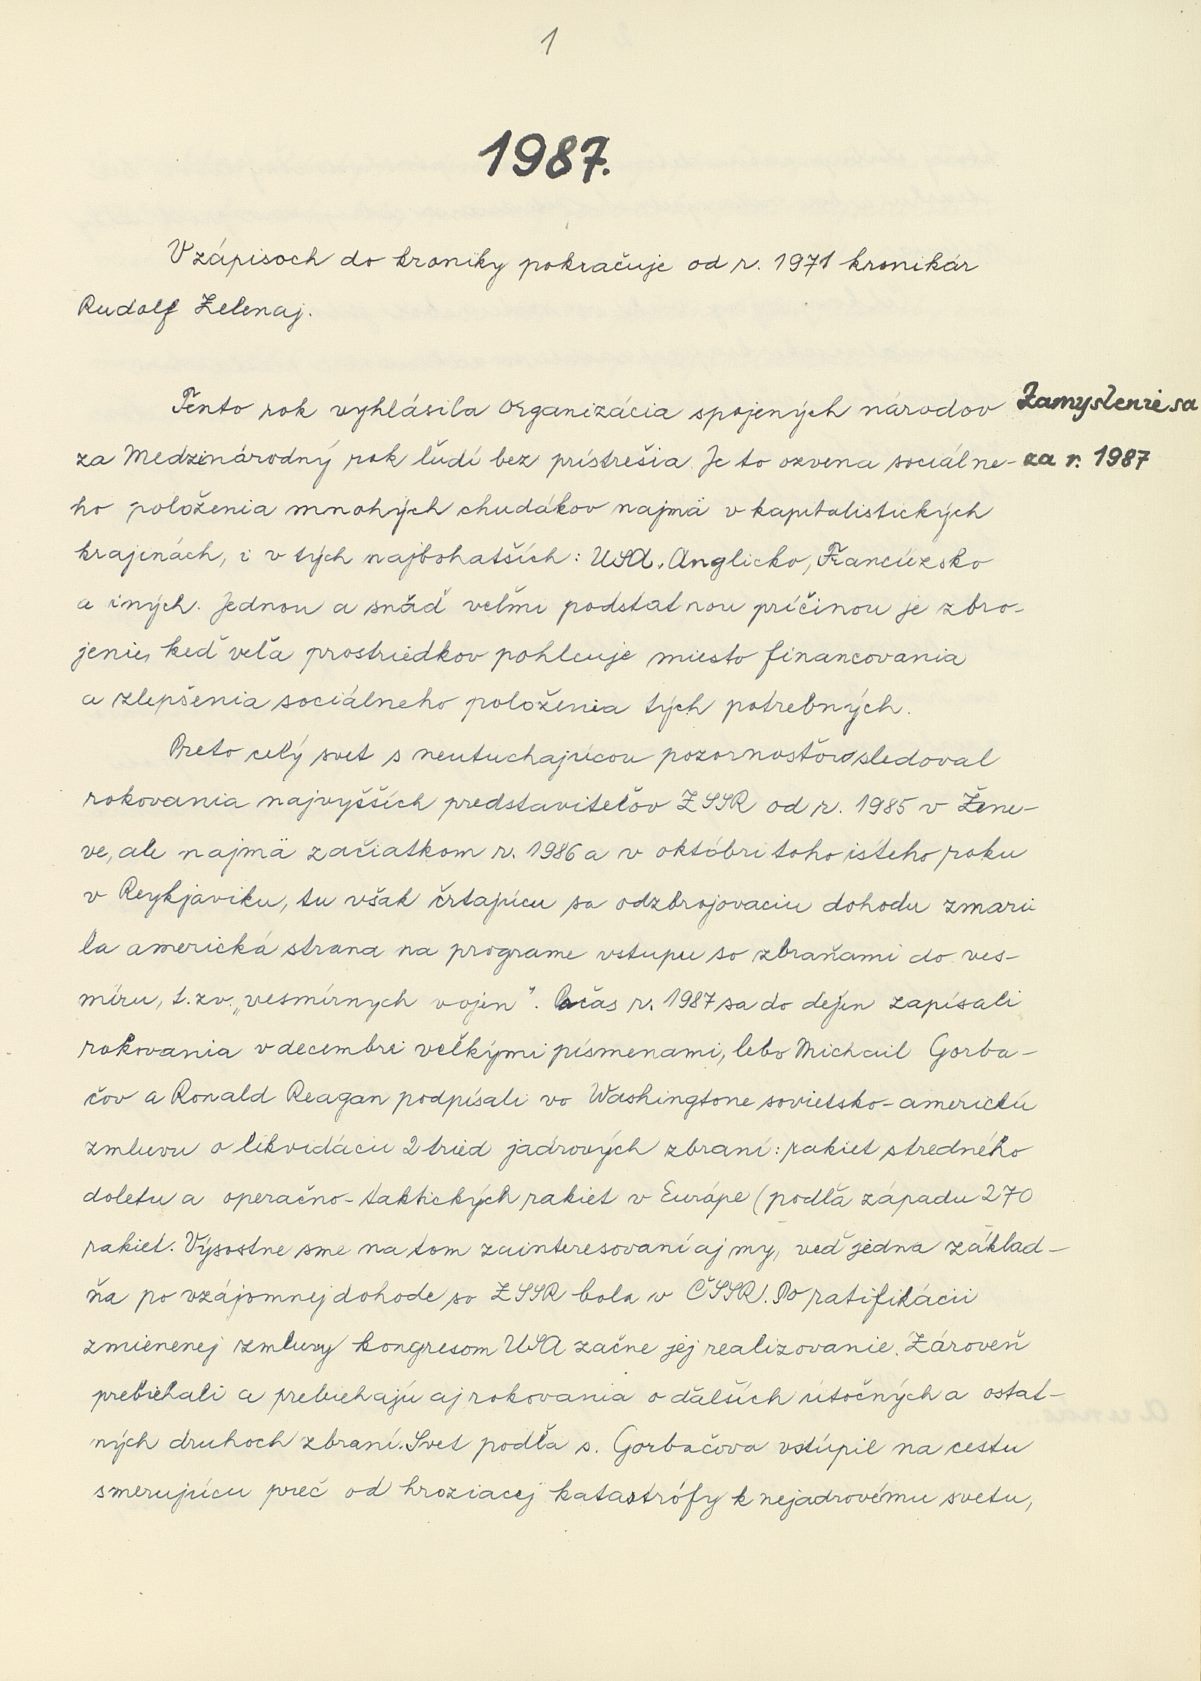 1
1987.
V zápisoch do kroniky pokračuje od r. 1971 kronikár
Rudolf Zelenaj.
Tento rok vyhlásila Organizácia spojených národov
Zamyslenie sa
za Medzinárodný rok ľudí bez prístrešia. Je to ozvena sociálne-
za r. 1987
ho položenia mnohých chudákov najmä v kapitalistických
krajinách, i v tých najbohatších: USA, Anglicko, Francúzsko
a iných. Jednou a snáď veľmi podstatnou príčinou je zbro-
jenie, keď veľa prostriedkov pohlcuje miesto financovania
a zlepšenia sociálneho položenia tých potrebných.
Preto celý svet s neutuchajúcou pozornosťou sledoval
rokovania najvyšších predstaviteľov ZSSR od r. 1985 v Žene-
ve, ale najmä začiatkom r. 1986 a v októbri toho istého roku
v Reykjaviku, tu však črtajúcu sa odzbrojovaciu dohodu zmari
la americká strana na programe vstupu so zbraňami do ves-
míru, t. zv. „vesmírnych vojen". Počas r. 1987 sa do dejín zapísali
rokovania v decembri veľkými písmenami, lebo Michail Gorba-
čov a Ronald Reagan podpísali vo Washingtone sovietsko-americkú
zmluvu o likvidáciu 2 tried jadrových zbraní: rakiet stredného
doletu a operačno-taktických rakiet v Európe (podľa západu 270
rakiet. Výsostne sme na tom zainteresovaní aj my, veď jedna základ-
ňa po vzájomnej dohode so ZSSR bola v ČSSR. Po ratifikácii
zmienenej zmluvy kongresom USA začne jej realizovanie. Zároveň
prebiehali a prebiehajú aj rokovania o ďalších útočných a ostat-
ných druhoch zbraní. Svet podľa s. Gorbačova vstúpil na cestu
smerujúcu preč od hroziacej katastrófy k nejadrovému svetu,